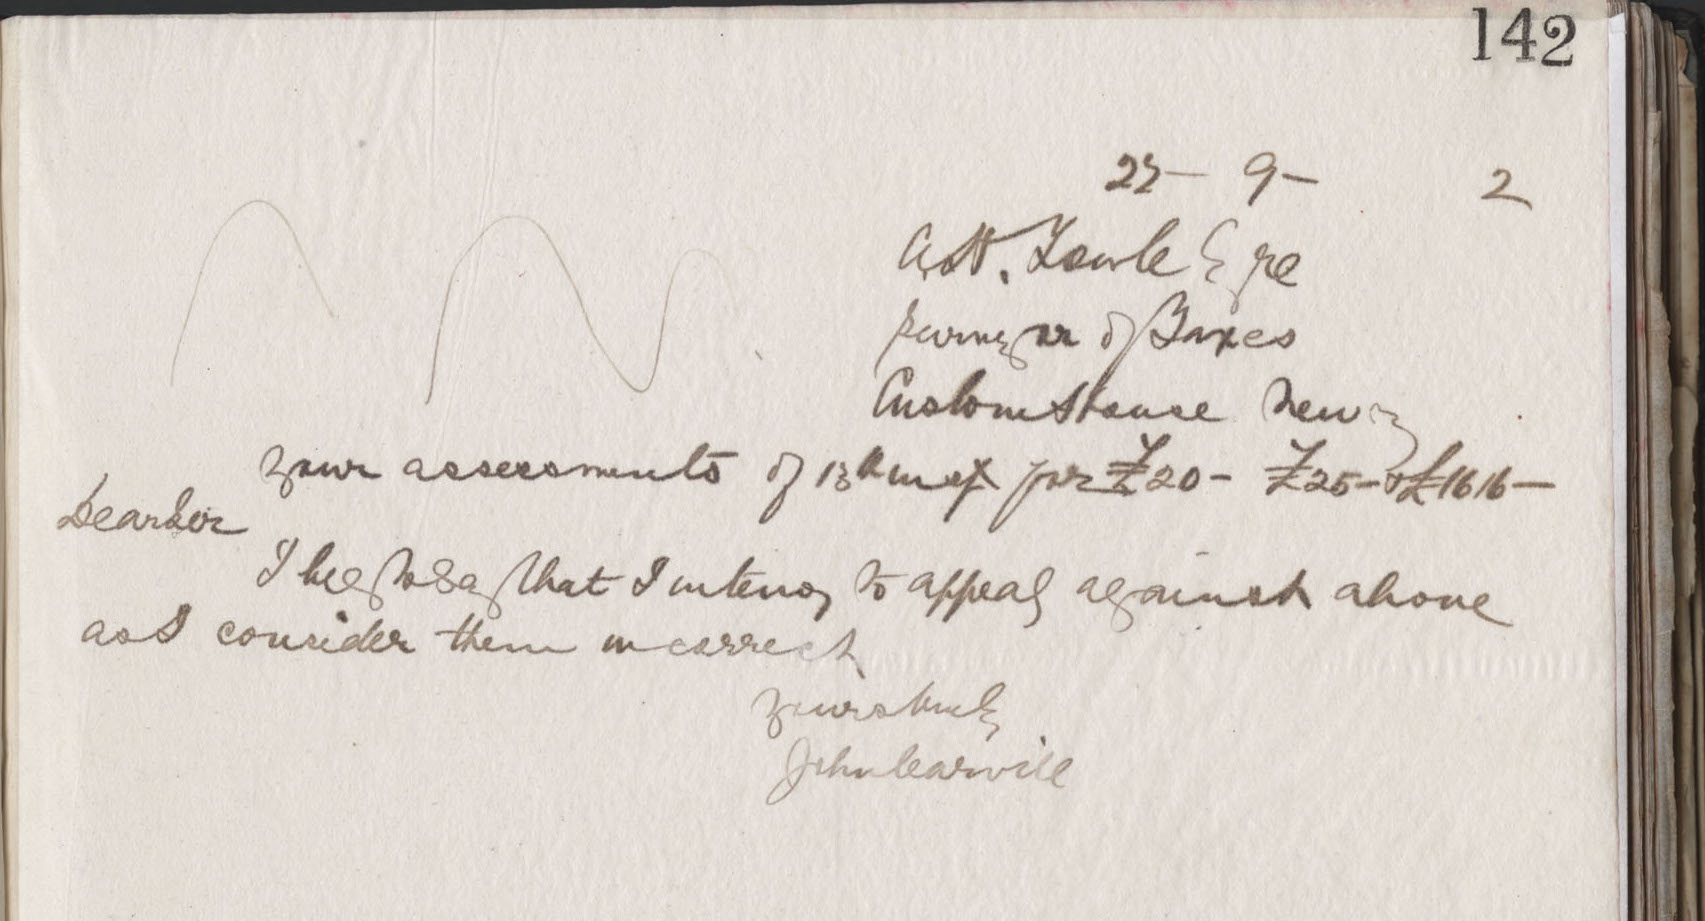 142
22 - 9 - 2
A.H. Fowle Esqre
Surveyor of Taxes
Custom House Newry
Your assessments of 13th for £20 - £25 - & £16 16 -
Dear Sir
I beg to say that I intend to appeal against above
as I consider them incorrect
Yours truly
John Carvill